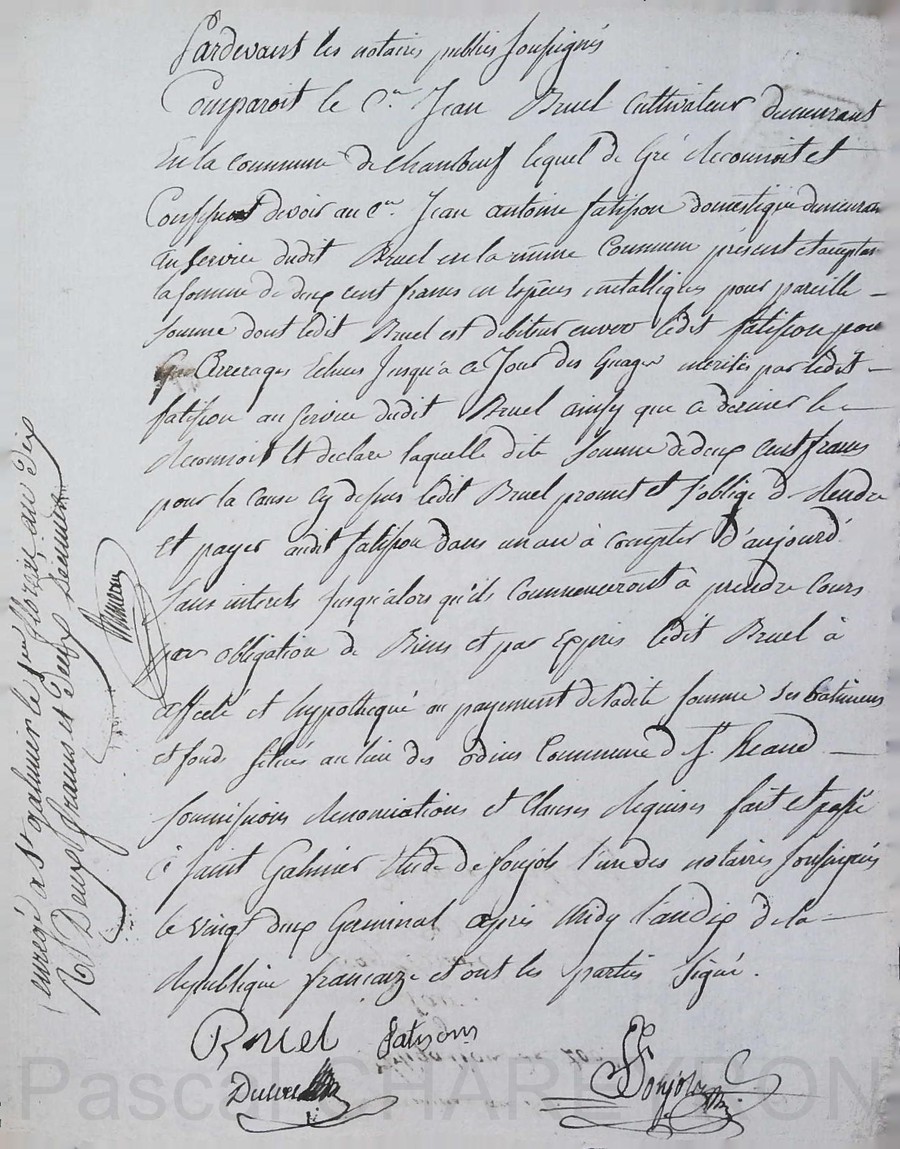 Pardevant les notaires publics soussignés
Comparoit le Cen Jean Bruel Cultivateur demeurant
En la commune de Chambeuf lequel de Gré Reconnoit et
Confesse devoir au Cen Jean antoine fatisson domestique demeuran
au service dudit Bruel en la même Commune présent et acceptan
la somme de deux cent francs en Espèces métalliques pour pareille
somme dont ledit Bruel est débiteur envers ledit fatisson pour
Arrerages Echus Jusqu'a ce Jour des Guages mérités par ledit
fatisson au service dudit Bruel ainsy que ce dernier le
Reconnoit Et declare laquelle dite somme de deux cent francs
pour la cause cy dessus ledit Bruel promet et s'oblige de Rendre
et payer audit fatisson dans un an à compter d'aujourd'
sans interets jusqu'alors qu'ils Commenceront à prendre Cours
par obligation de Biens et par Exprès ledit Bruel à
affecté et hypothequé au payement de ladite somme ses batimens
et fonds situés au lieu des odins Commune de St heand
soumissions Renonciations et Clauses Requises fait et passé
à Saint Galmier Etude de sonjols l'un des notaires soussignés
le vingt deux Germinal après Midy l'an dix de la
Republique françaize et ont les parties signé.
Bruel fatisson
Sonjols
enregé a St galmier le 1er floréal an Dix
R Deux francs et Deux Décimes
Pascal CHAPEYRON